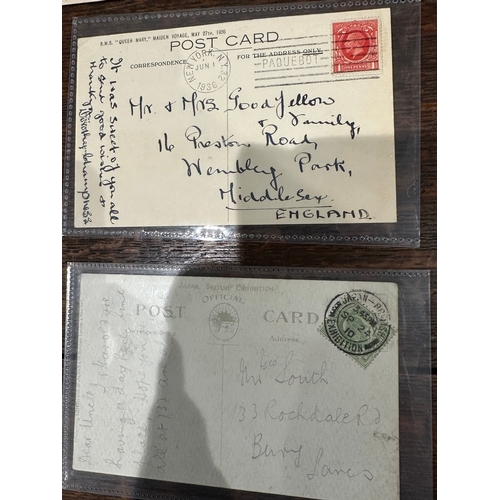 R.M.S. "QUEEN MARY," MAIDEN VOYAGE, MAY 27th, 1936
POST CARD
CORRESPONDENCE
FOR THE ADDRESS ONLY.
NEW YORK, N.Y.
JUN 1
1936
PAQUEBOT
It was sweet of you all
to send good wishes to
Mr. & Mrs Goodfellow
& Family,
16 Preston Road,
Wembley Park,
Middlesex.
ENGLAND.
JAPAN BRITISH EXHIBITION
POST
OFFICIAL
CARD
Address
JAPAN-BRITISH
EXHIBITION
SP 24
10
Dear Uncle
having a day
all at 133
Mrs South
133 Rochdale Rd
Bury
Lancs